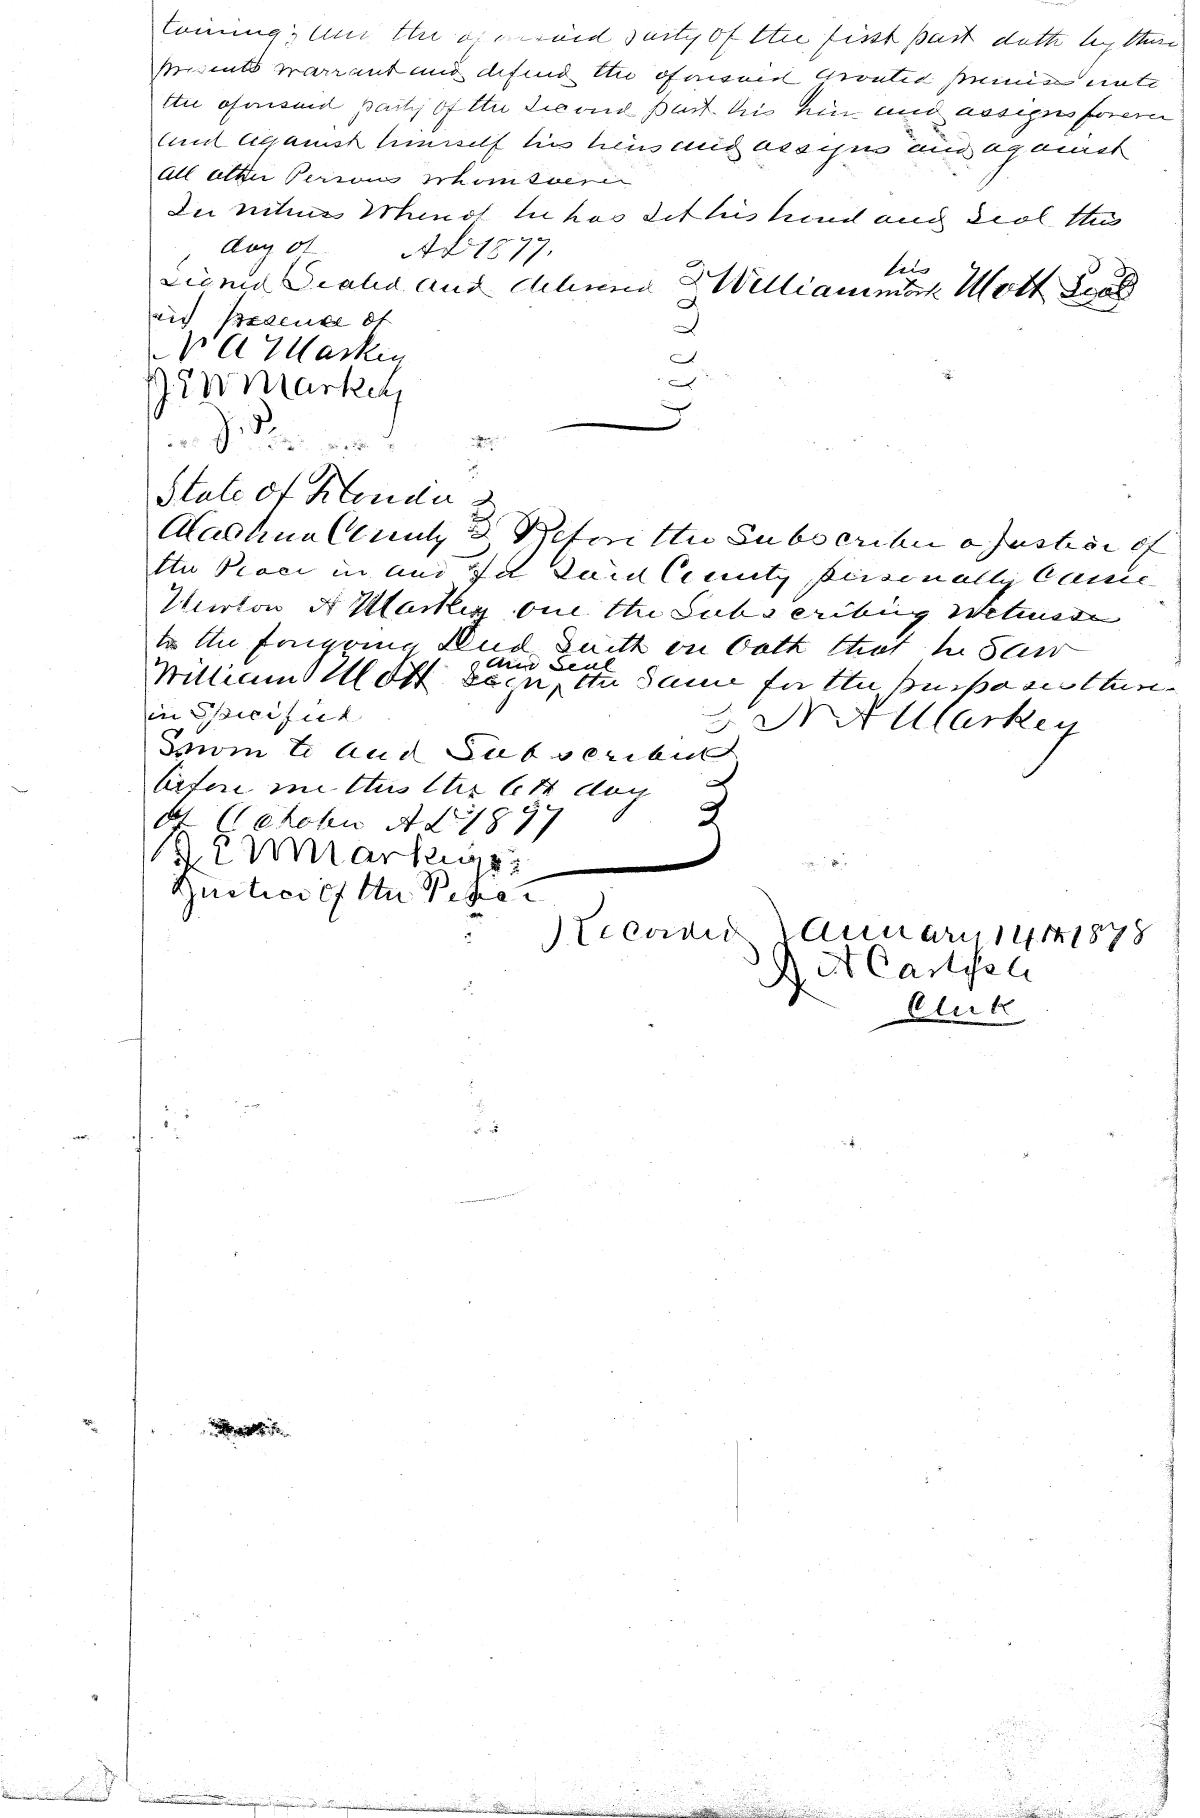 taining; and the aforesaid party of the first part doth by these
presents warrant and defend the aforesaid granted premises unto
the aforesaid party of the Second part his heirs and assigns forever
and against himself his heirs and assigns and against
all other Persons whomsoever
In witness Whereof he has Set his hand and Seal this
day of AD 1877.
Signed Sealed and delivered William his mark Mott Seal
in presence of
N A Markey
J E W Markey
J. P.
State of Florida
Alachua County Before the Subscriber a Justice of
the Peace in and for Said County personally Came
Newton A Markey one the Subscribing Witnesses
to the foregoing Deed Saith on Oath that he Saw
William Mott Sign and Seal the Same for the purposes there-
in Specified
N A Markey
Sworn to and Subscribed
before me this the 6th day
of October AD 1877
J E W Markey
Justice of the Peace
Recorded January 14th 1878
J A Carlisle
Clerk